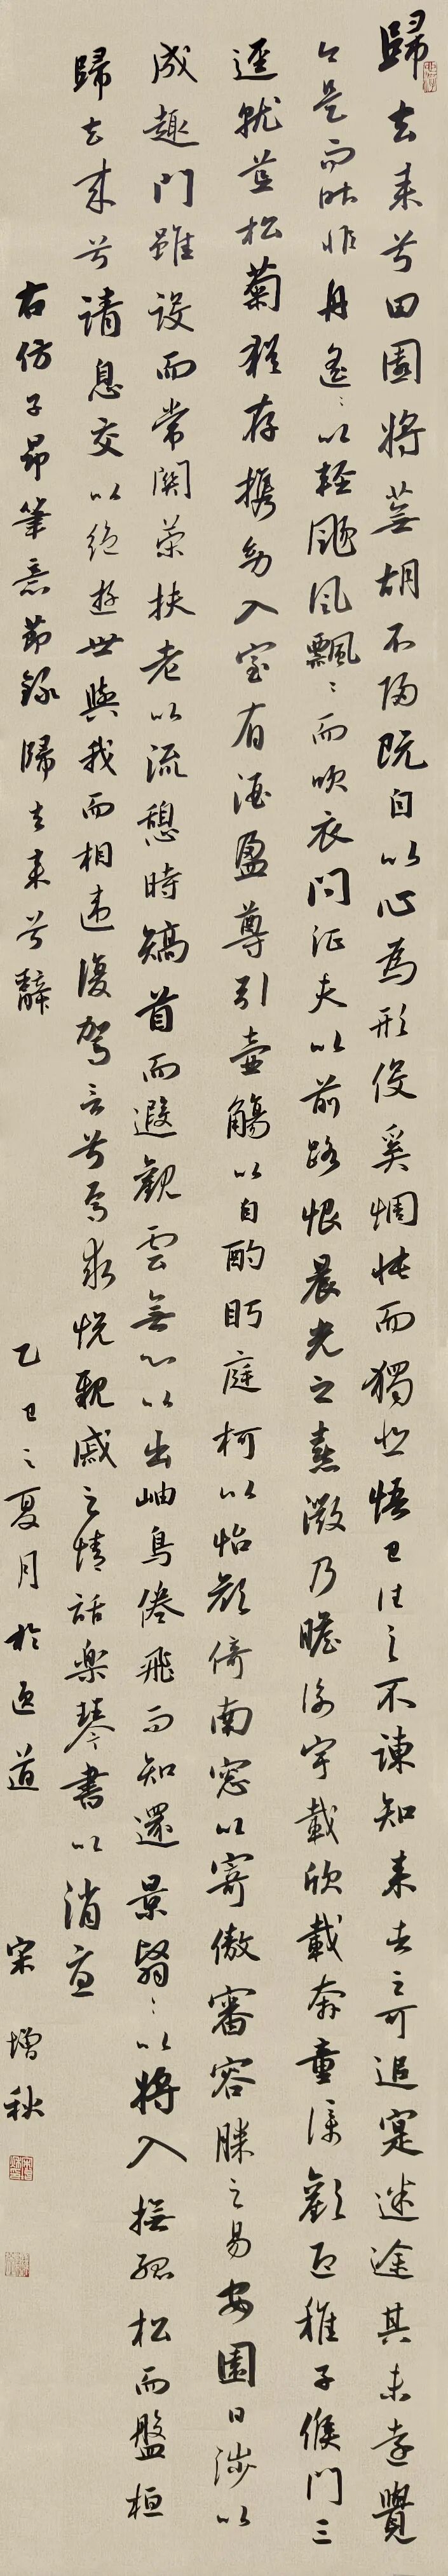 歸去来兮田園将蕪胡不歸既自以心為形役奚惆悵而獨悲悟已往之不諫知来者之可追寔迷途其未遠覺
今是而昨非舟遙〻以輕颺風飄〻而吹衣問征夫以前路恨晨光之熹微乃瞻衡宇載欣載奔童僕歡迎稚子候門三
逕就荒松菊猶存携幼入室有酒盈尊引壺觴以自酌眄庭柯以怡顔倚南窓以寄傲審容膝之易安園日涉以
成趣門雖設而常關策扶老以流憩時矯首而遐觀雲無心以出岫鳥倦飛而知還景翳〻以将入撫孤松而盤桓
歸去来兮請息交以绝遊世與我而相違復駕言兮焉求悦親戚之情話樂琴書以消憂
右仿子昂筆意節録歸去来兮辭 乙巳之夏月於 道 宋增秋